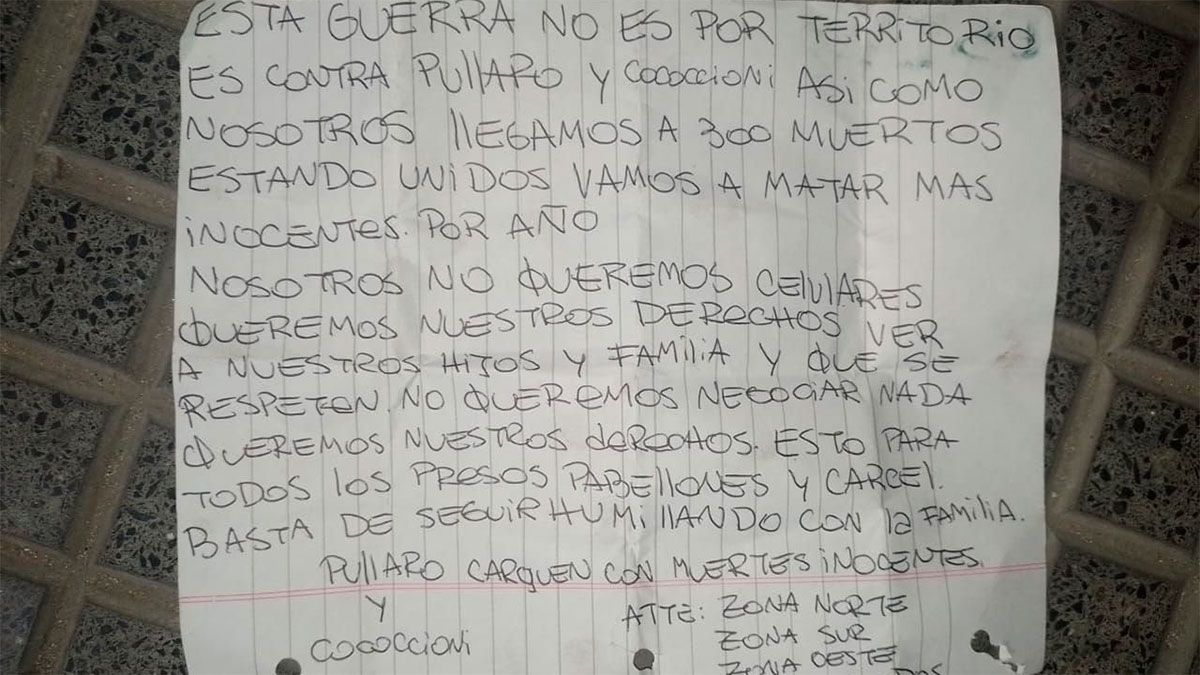 ESTA GUERRA NO ES POR TERRITORIO
ES CONTRA PULLARO Y COCOCCIONI ASi COMO
NOSOTROS LLEGAMOS A 300 MUERTOS
ESTANDO UNiDOS VAMOS A MATAR MAS
iNOCENTES. POR AÑO
NOSOTROS NO QUEREMOS CELULARES
QUEREMOS NUESTROS DERECHOS VER
A NUESTROS HIJOS Y FAMILIA Y QUE SE
RESPETEN. NO QUEREMOS NEGOCIAR NADA
QUEREMOS NUESTROS dERECHOS. ESTO PARA
TODOS LOS PRESOS PABELLONES Y CARCEL.
BASTA DE SEGUIR HUMILLANDO CON LA FAMILIA.
PULLARO CARGUEN CON MUERTES iNOCENTES.
Y
COCOCCIONI
ATTE: ZONA NORTE
ZONA SUR
ZONA OESTE